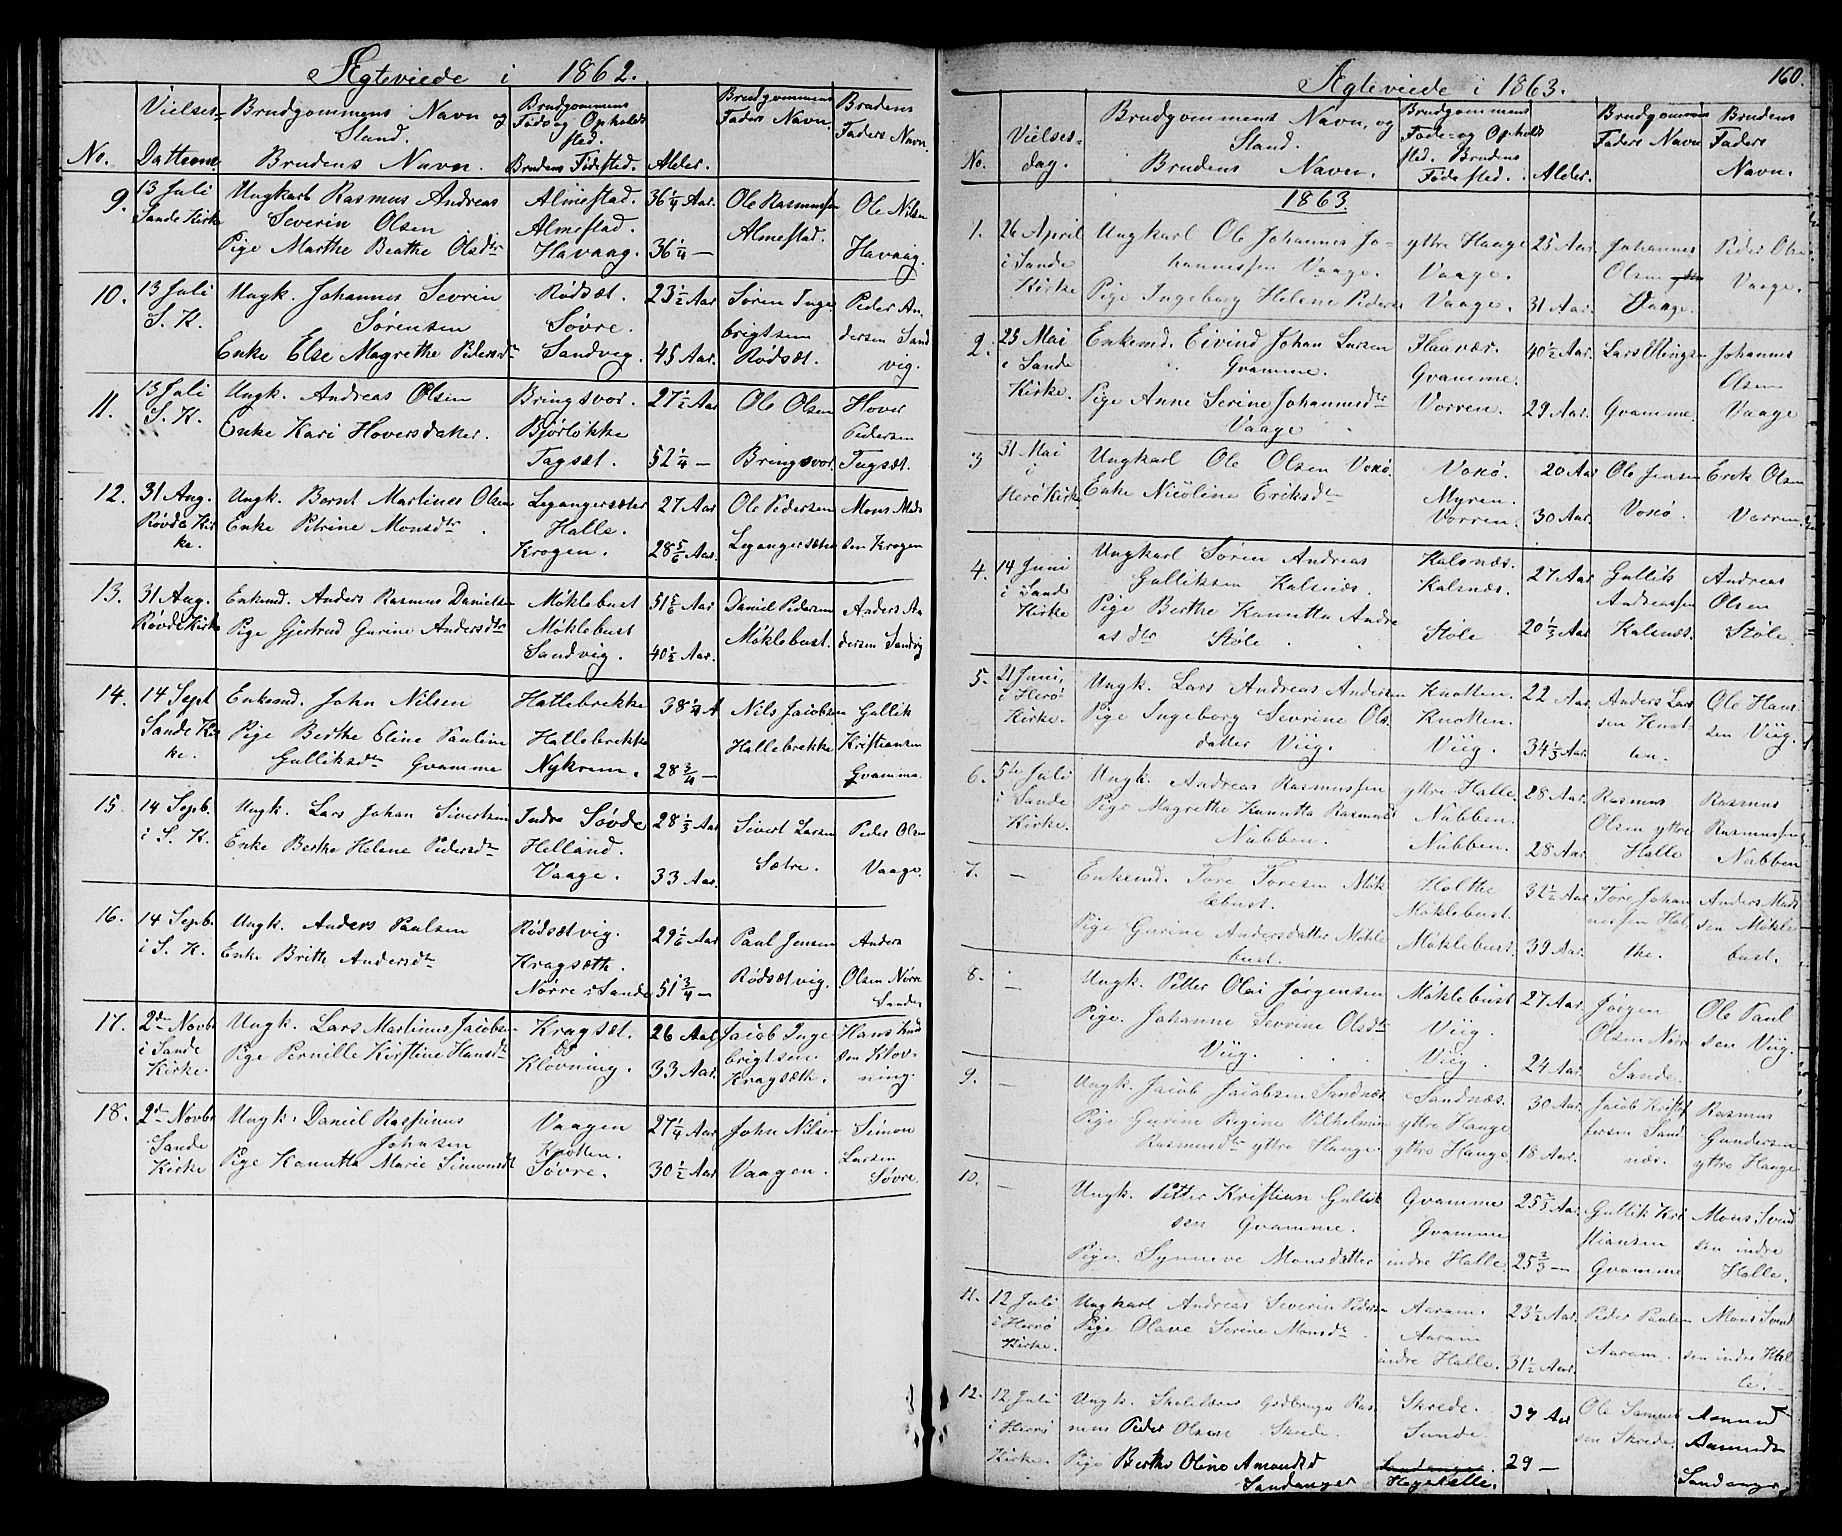 Ægteviede i 1862.
No.
Vielses-
Dattum
Brudgommens Navn og
Stand.
Brudens Navn.
Brudgommens
Føde og Opholds
sted.
Brudens Fødested.
Alder.
Brudgommens
Faders Navn.
Brudens
Faders Navn.
9.
13 Juli
Sande Kirke
Ungkarl Rasmus Andreas
Severin Olsen
Pige Marthe Beathe Olsdtr
Almestad.
Almestad.
Havaag.
36 1/4 Aar.
36 1/4 —
Ole Rasmussen
Almestad.
Ole Nilsen
Havaag.
10.
13 Juli
S. K.
Ungk. Johannes Sevrin
Sørensen
Enke Else Magrethe Pedersdtr
Rødsæt.
Søvre.
Sandvig.
23 1/2 Aar
45 Aar.
Søren Inge
brigtsen
Rødsæt.
Peder An
dersen Sand
vig.
11.
13 Juli
S. K.
Ungk. Andreas Olsen
Enke Kari Hoversdatter.
Bringsvor.
Bjørløkke
Tagsæt.
27 1/2 Aar
52 1/4 —
Ole Olsen
Bringsvor
Hover
Pedersen
Tagsæt.
12.
31 Aug.
Røvde Kir
ke.
Ungk. Bernt Martines Olsen
Enke Petrine Monsdtr
Legangersæter
Halle.
Krogen.
27 Aar
28 5/6 Aar.
Ole Pedersen
Legangersæter
Mons Mads
sen Krogen
13.
31 Aug.
Røvde Kirke
Enkemd. Anders Rasmus Danielsen
Pige Gjertrud Gurine Andersdtr
Møklebust
Møklebust
Sandvig.
51 5/6 Aar
40 1/2 Aar.
Daniel Pedersen
Møklebust.
Anders An
dersen Sandvig
14.
14 Sept
Sande Kir
ke.
Enkemd. John Nilsen
Pige Berthe Eline Pauline
Gulliksdtr Gvamme
Hattebrekke
Hallebrekke
Nykrem.
38 1/4 A
28 3/4 —
Nils Jacobsen
Hallebrekke
Gullik
Kristiansen
Gvamme.
15.
14 Septb.
i S. K.
Ungk. Lars Johan Sivertsen
Enke Berthe Helene Pedersdtr
Indre Søvde
Helland.
Vaage.
28 1/3 Aar
33 Aar.
Sivert Larsen
Sætre.
Peder Olsen
Vaage.
16.
14 Septb.
i S. K.
Ungk. Anders Paulsen
Enke Brith Andersdtr
Rødsætvig.
Kragsæth.
Nørre i Sande
29 1/6 Aar
51 3/4 —
Paul Jensen
Rødsætvig.
Anders
Olsen Nørre
Sande
17.
2den Novbr
i Sande
Kirke.
Ungk. Lars Martinus Jacobsen
Pige Pernille Kirstine Hansdtr
Kragsæt.
do
Kløvning.
26 Aar
33 Aar.
Jacob Inge
brigtsen
Kragsæth.
Hans Knud
sen Kløv-
ning.
18.
2den Novbr
Sande
Kirke
Ungk. Daniel Rasmus
Johnsen
Pige Kanutta Marie Simonsdtr
Vaagen
Knotten.
Søvre.
27 1/4 Aar
30 1/2 Aar
John Nilsen
Vaagen.
Simon
Larsen
Søvre.
160.
Ægteviede i 1863.
No.
Vielses-
dag.
Brudgommens Navn, og
Stand.
Brudens Navn.
Brudgommens
Føde- og Opholds
sted. Brudens
Fødested.
Alder.
Brudgommens
Faders Navn
Brudens
Faders
Navn.
1863.
1.
26 April
i Sande
Kirke
Ungkarl Ole Johannes Jo-
hannessen Vaage.
Pige Ingeborg Helene Peders
yttre Haage
Vaage.
Vaage.
25 Aar
31 Aar.
Johannes
Olsen
Vaage.
Peder Olsen
Vaage.
2.
25 Mai
i Sande
Kirke.
Enkemd. Eivind Johan Larsen
Gvamme.
Pige Anne Serine Johannesdtr
Vaage
Flaavær.
Gvamme.
Vorren.
40 1/2 Aar
29 Aar.
Lars Ellingsen
Gvamme
Johannes
Olsen
Vaage
3
31 Mai
i
Herø Kirke
Ungkarl Ole Olsen Voxø.
Enke Nicoline Eriksdtr
Voxø.
Myren.
Vorren.
20 Aar
30 Aar.
Ole Jensen
Voxø.
Erik Olsen
Vorren.
4.
14 Juni
i Sande
Kirke
Ungkarl Søren Andreas
Gulliksen Kalsnæs.
Pige Berthe Kanutta Andre
as dtr Støle.
Kalsnæs.
Kalsnæs.
Støle
27 Aar
20 1/3 Aar
Gullik
Andreassen
Kalsnæs.
Andreas
Olsen
Støle.
5.
21 Juni,
i Herø
Kirke.
Ungk. Lars Andreas Andersen
Pige Ingeborg Sevrine Ols
datter Viig.
Knotten.
Knotten.
Viig.
22 Aar.
34 1/3 Aar.
Anders Lars
sen Knot
ten.
Ole Han
sen Viig.
6.
5te Juli
i Sande
Kirke.
Ungk. Andreas Rasmussen
Pige Magrethe Kanutta Rasmusdtr
Nubben.
yttre Halle.
Nubben.
Nubben.
28 Aar.
28 Aar.
Rasmus
Olsen yttre
Halle
Rasmus
Rasmussen
Nubben
7.
—
Enkemd. Tore Toresen Møk
lebust.
Pige Gurine Andersdatter Møkle
bust.
Holthe
Møklebust.
Møklebust.
32 1/2 Aar
39 Aar.
Tore Johan
nessen Hol
the.
Anders Mads
sen Møkle
bust.
8.
—
Ungk. Petter Olai Jørgensen
Pige. Johanne Sevrine Olsdtr
Viig.
Møklebust
Viig.
Viig.
27 Aar
24 Aar.
Jørgen
Olsen Nørr
Sande.
Ole Paul
sen Viig.
9.
—
Ungk. Jacob Jacobsen Sandnæs
Pige Gurine Regine Vilhelmine
Rasmusdtr yttre Haage.
Sandnæs.
yttre Haage
yttre Haage
30 Aar
18 Aar.
Jacob Kristof
fersen Sand
næs.
Rasmus
Gundersen
yttre Haage
10.
—
Ungk. Petter Kristian Gullik
sen Gvamme.
Pige. Synneve Monsdatter
Gvamme
Gvamme
indre Halle.
25 2/3 Aar.
25 2/3 —
Gullik Kri
stiansen
Gvamme
Mons Svend
sen indre
Halle.
11.
12 Juli
i Herrø
Kirke.
Ungkarl Andreas Severin Pedersen
Pige Olave Serine Monsdtr
Aaram.
Aaram
indre Halle.
23 1/2 Aar.
31 1/2 Aar.
Peder Paulsen
Aaram.
Mons Svend
sen indre Hal
le.
12.
12 Juli
i Herrø
Kirke.
Ungk. Skolelærer Grdbruger Ras
mus Peder Olsen Skrede.
Pige Berthe Oline Amundsd
Sandanger
Skrede.
Sande.
Sandanger.
Hegekelle.
37 Aar
29 —
Ole Samuel
sen Skrede.
Asmund
Aamunds
Sandanger